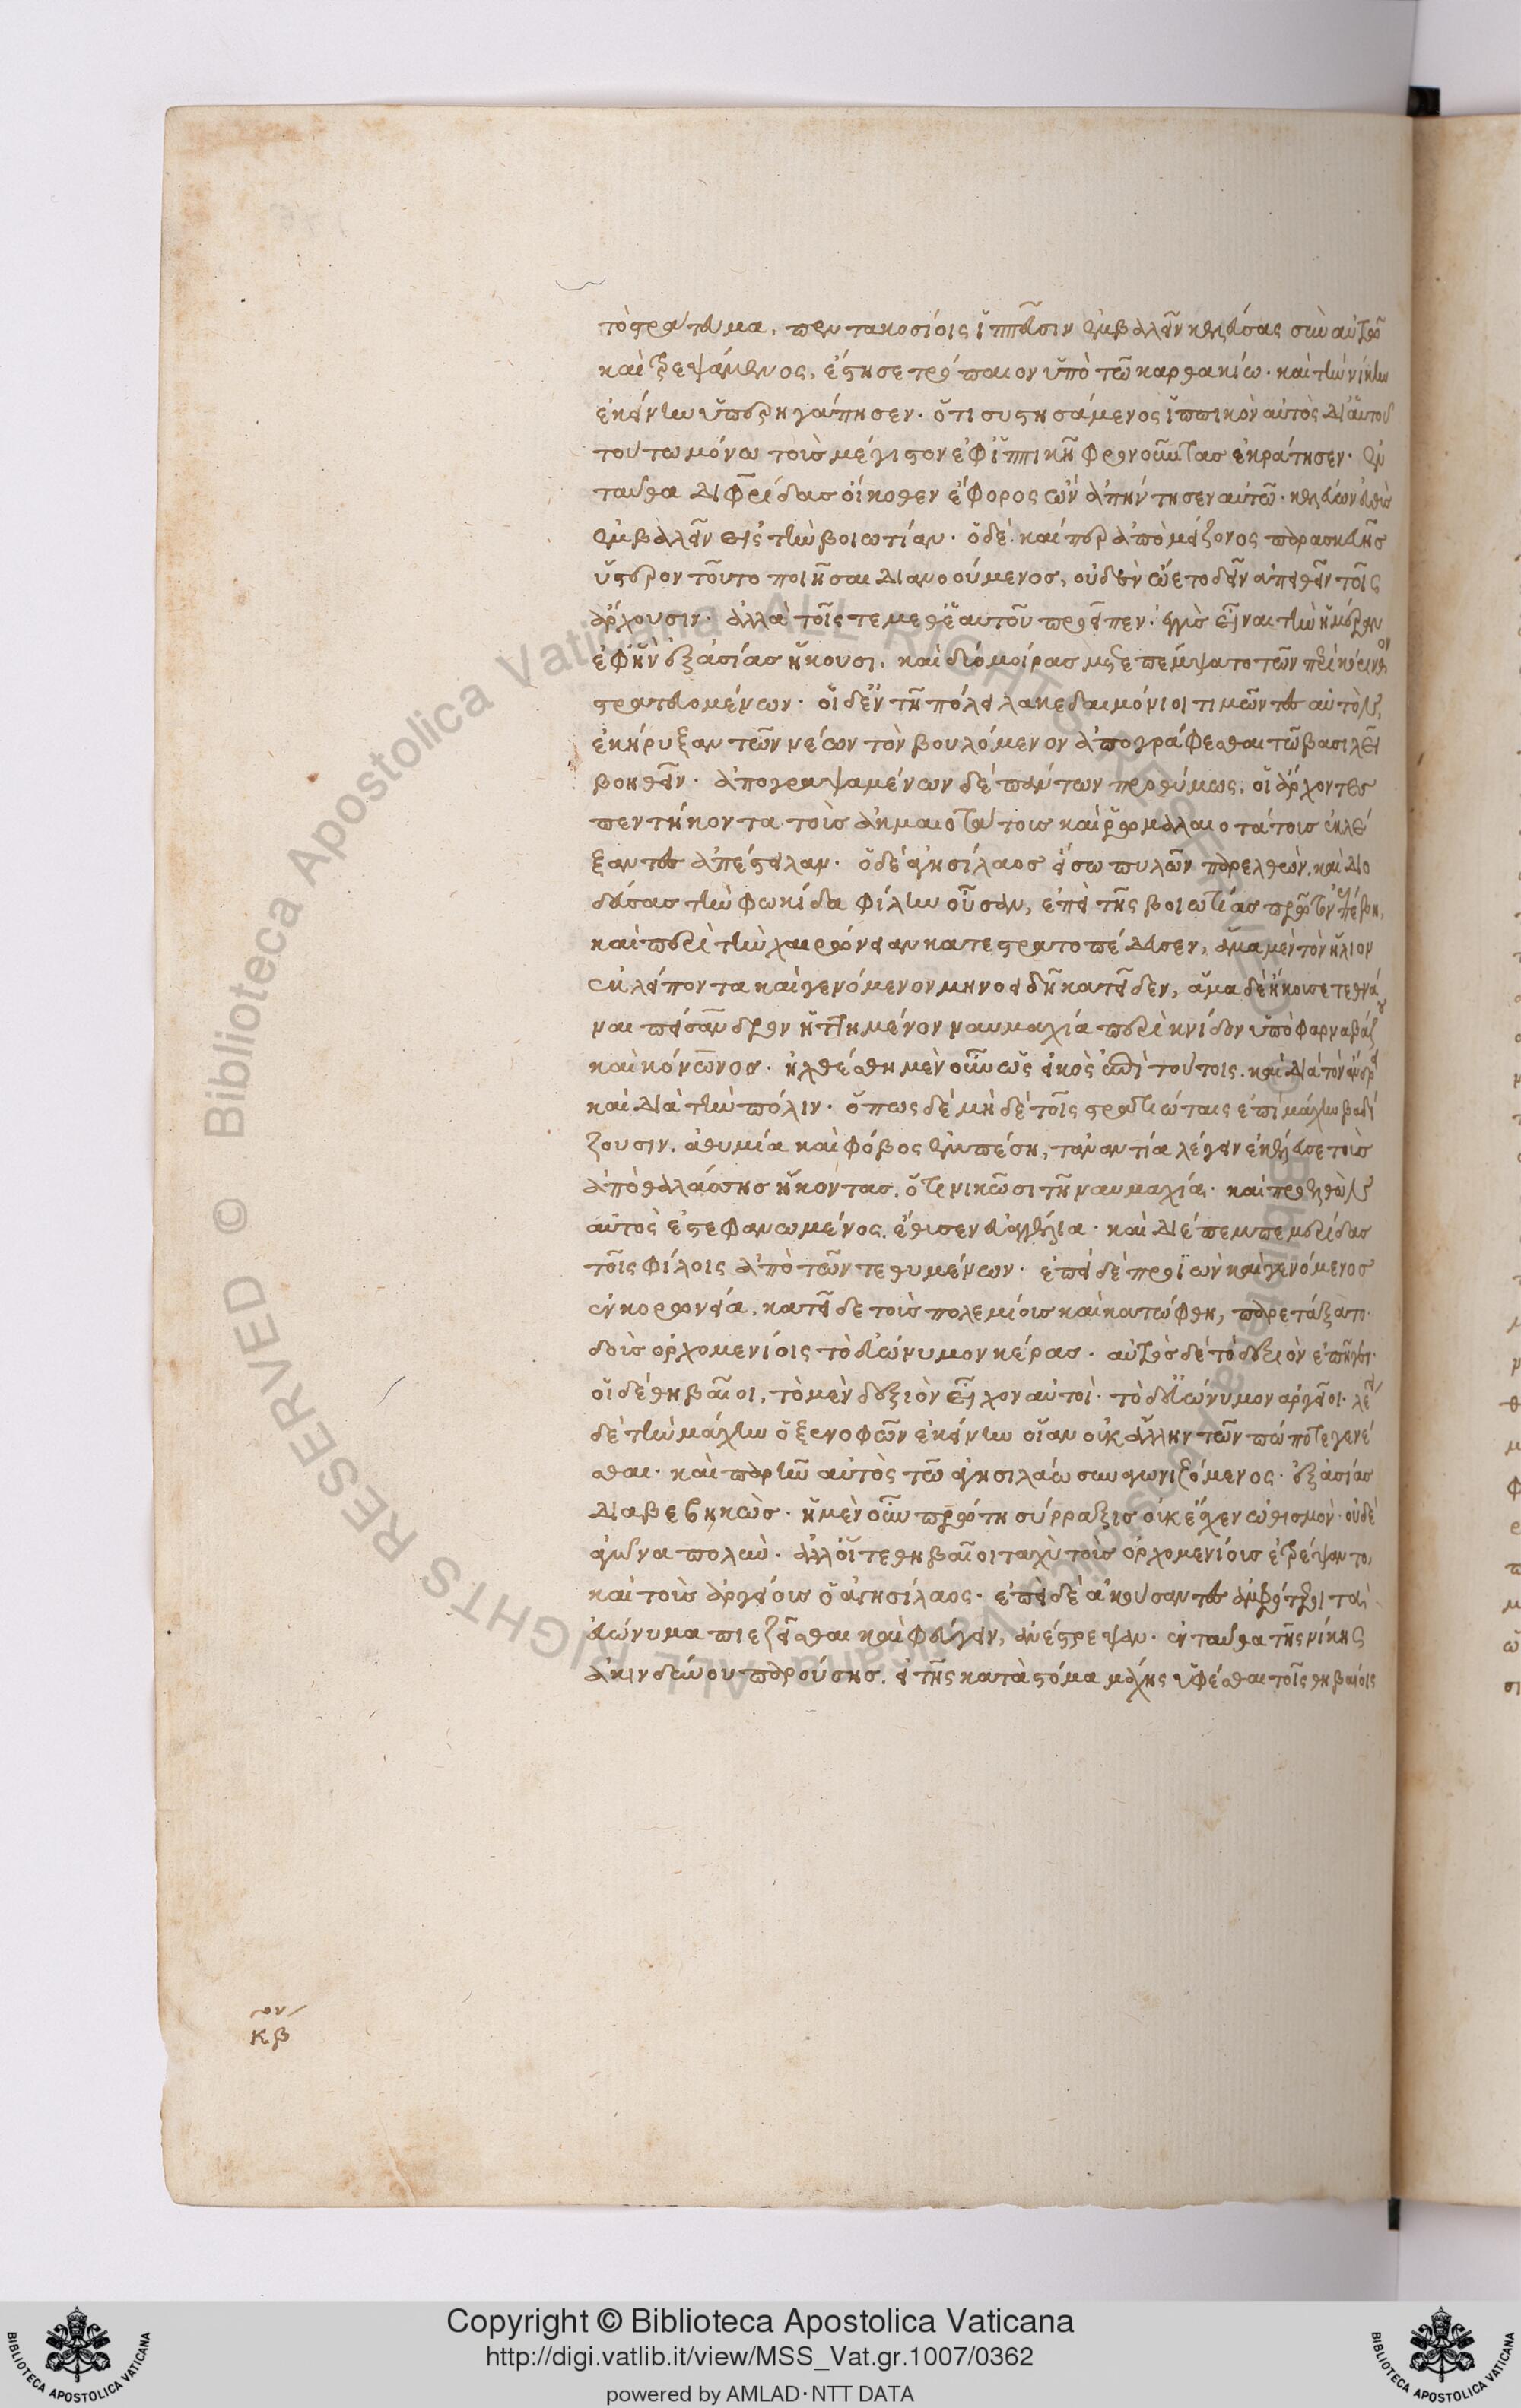 τὸ στράτευμα, πεντακοσίοις ἱππεῦσιν ἐμβαλεῖν κελεύσας σὺν αὐτῶ
καὶ τρεψάμενος, ἔστησε τρόπαιον ὑπὸ τῶ ναρθακίω. καὶ τὴν νίκην
ἐκείνην ὑπερηγάπησεν. ὅτι συστησάμενος ἱππικὸν αὐτὸς δι' αὑτοῦ
τούτω μόνω τοὺς μέγιστον ἐφ' ἱππικῆ φρονοῦντας ἐκράτησεν. ἐν
ταῦθα διφρίδας οἴκοθεν ἔφορος ὢν ἀπήντησεν αὐτῶ. κελεύων εὐθὺς
ἐμβαλεῖν εἰς τὴν βοιωτίαν. ὁ δὲ καίπερ ἀπὸ μείζονος παρασκευῆς
ὕστερον τοῦτο ποιῆσαι διανοούμενος, οὐδὲν ὤετο δεῖν ἀπειθεῖν τοῖς
ἄρχουσιν. ἀλλὰ τοῖς τε μεθ' ἑαυτοῦ προεῖπεν. ἐγγὺς εἶναι τὴν ἡμέραν
ἐφ' ἣν ἐξ ἀσίας ἥκουσι. καὶ δύο μόρας μετεπέμψατο τῶν περὶ κόρινθον
στρατευομένων. οἱ δ' ἐν τῆ πόλει λακεδαιμόνιοι τιμῶντες αὐτὸν,
ἐκήρυξαν τῶν νέων τὸν βουλόμενον ἀπογράφεσθαι τῶ βασιλεῖ
βοηθεῖν. ἀπογραψαμένων δὲ πάντων προθύμως, οἱ ἄρχοντες
πεντήκοντα τοὺς ἀκμαιοτάτους καὶ ῥωμαλαιοτάτους ἐκλέ
ξαντες ἀπέστειλαν. ὁ δὲ ἀγησίλαος εἴσω πυλῶν παρελθὼν, καὶ διο
δεύσας τὴν φωκίδα φίλην οὖσαν, ἐπεὶ τῆς βοιωτίας πρῶτον ἐπέβη,
καὶ περὶ τὴν χαιρώνειαν κατεστρατοπέδευσεν, ἅμα μὲν τὸν ἥλιον
ἐκλείποντα καὶ γενόμενον μηνοειδῆ κατεῖδεν, ἅμα δὲ ἤκουσε τεθνά
ναι πείσανδρον ἡττημένον ναυμαχία περὶ κνίδον ὑπὸ φαρναβάζου
καὶ κόνωνος. ἠχθέσθη μὲν οὖν ὡς εἰκὸς ἐπὶ τούτοις, καὶ διὰ τὸν ἄνδρα
καὶ διὰ τὴν πόλιν. ὅπως δὲ μὴ δὲ τοῖς στρατιώταις ἐπὶ μάχην βαδί
ζουσιν, ἀθυμία καὶ φόβος ἐμπέση, τἀναντία λέγειν ἐκέλευσε τοὺς
ἀπὸ θαλάσσης ἥκοντας, ὅτι νικῶσι τῆ ναυμαχία. καὶ προελθὼν
αὐτὸς ἐστεφανωμένος, ἔθυσεν εὐαγγέλια. καὶ διέπεμπε μερίδας
τοῖς φίλοις ἀπὸ τῶν τεθυμένων. ἐπεὶ δὲ προϊὼν καὶ γενόμενος
ἐν κορωνεία, κατεῖδε τοὺς πολεμίους καὶ κατώφθη, παρετάξατο.
δοὺς ὀρχομενίοις τὸ εὐώνυμον κέρας. αὐτὸς δὲ τὸ δεξιὸν ἐπῆγεν.
οἱ δὲ θηβαῖοι, τὸ μὲν δεξιὸν εἶχον αὐτοί. τὸ δ' εὐώνυμον ἀργεῖοι. λέγει
δὲ τὴν μάχην ὁ ξενοφῶν ἐκείνην οἵαν οὐκ ἄλλην τῶν πώποτε γενέ
σθαι. καὶ παρῆν αὐτὸς τῶ ἀγησιλάω συναγωνιζόμενος. ἐξ ἀσίας
διαβεβηκὼς. ἡ μὲν οὖν πρώτη σύρραξις οὐκ ἔσχεν ὠθισμὸν. οὐδὲ
ἀγῶνα πολὺν. ἀλλ' οἵ τε θηβαῖοι ταχὺ τοὺς ὀρχομενίους ἐτρέψαντο,
καὶ τοὺς ἀργείους ὁ ἀγησίλαος. ἐπεὶ δὲ ἀκούσαντες ἀμφότεροι τὰ
εὐώνυμα πιεζεῖσθαι καὶ φεύγειν, ἀνέστρεψαν. ἐνταῦθα τῆς νίκης
ἀκινδύνου παρούσης. εἰ τῆς κατὰ στόμα μάχης ὑφέσθαι τοῖς θηβαίοις
τον
κβ
Biblioteca Apostolica Vaticana ALL RIGHTS RESERVED ©
Copyright © Biblioteca Apostolica Vaticana
http://digi.vatlib.it/view/MSS_Vat.gr.1007/0362
powered by AMLAD·NTT DATA
BIBLIOTECA APOSTOLICA VATICANA
BIBLIOTECA APOSTOLICA VATICANA